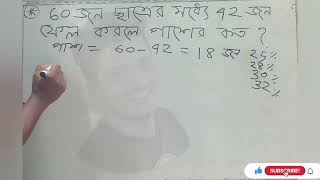 * 60 জন ছাত্রের মধ্যে 42 জন
ফেল করলে পাশের কত ?
পাশ = 60 - 42 = 18 জন
25%
28%
30%
32%
SUBSCRIBE